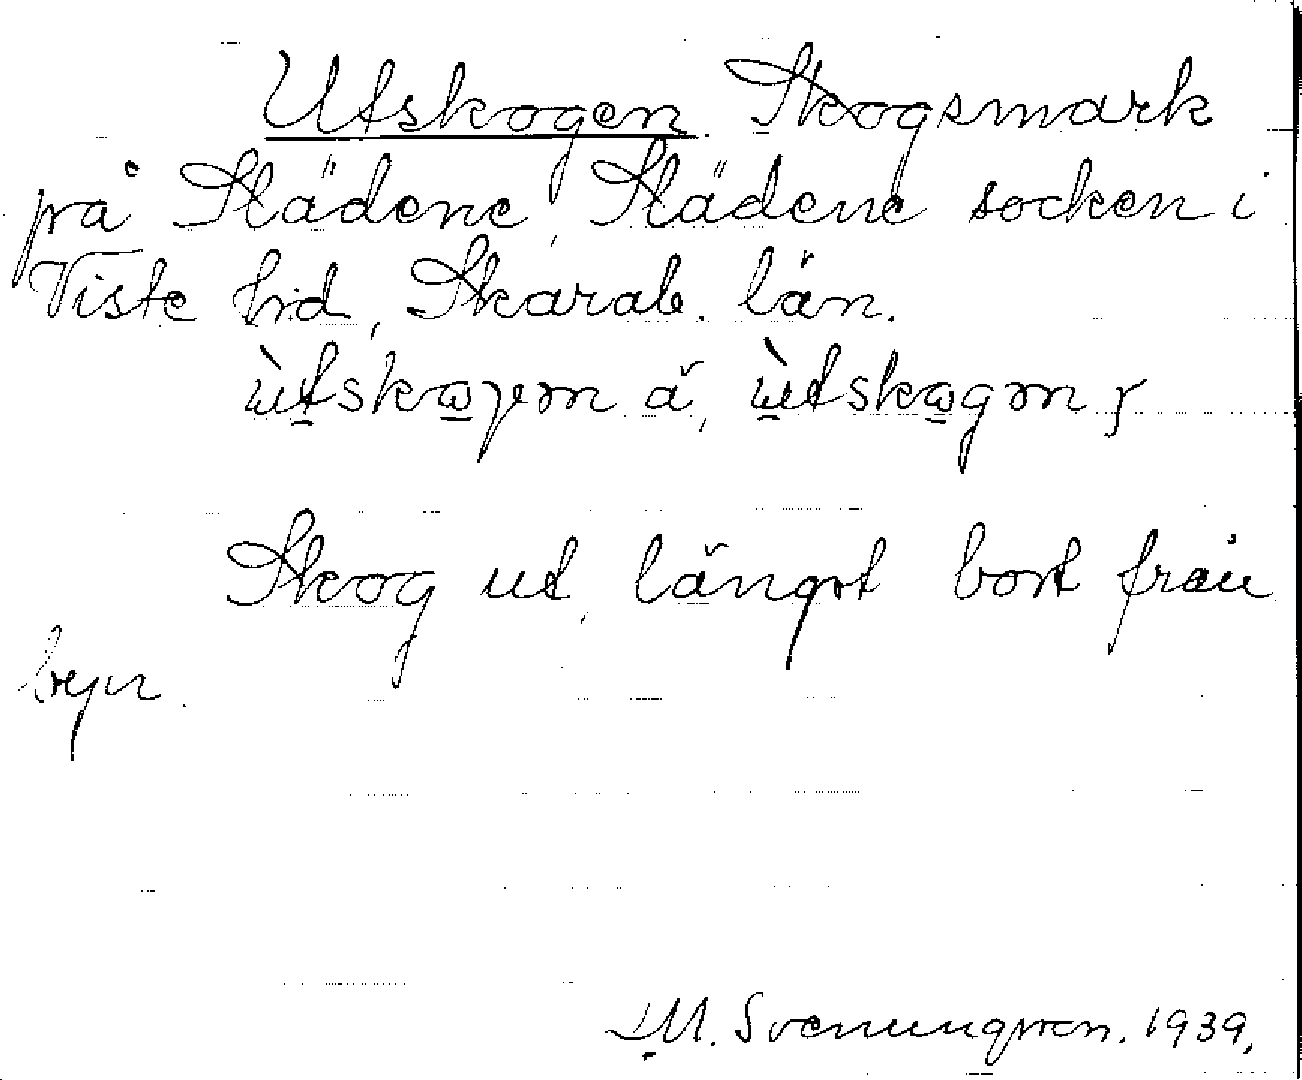 Utskogen. Skogsmark
på Slädene, Slädene socken i
Viste hd, Skarab. län.
Skog ut, längst bort från
byn.
M. Svenungsson. 1939.